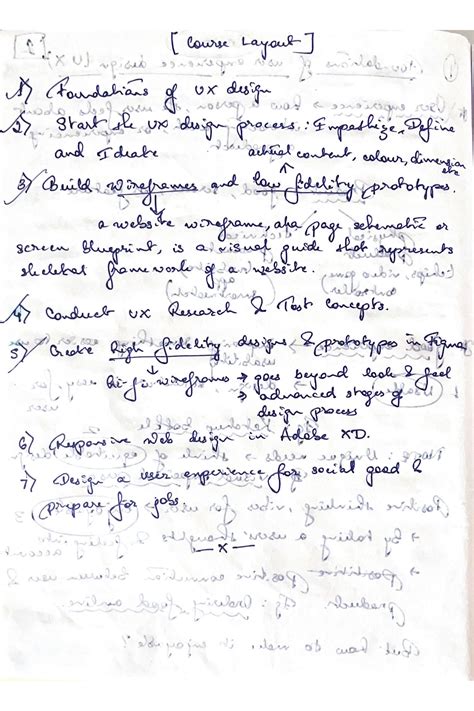 [Course Layout]
1) Foundations of UX design
2) Start the UX design process : Empathize, Define
and Ideate
actual content, colour, dimension etc
3) Build wireframes and low fidelity prototypes.
a website wireframe, aka page schematic or
screen blueprint, is a visual guide that represents
skeletal framework of a website.
4) Conduct UX Research & Test concepts.
5) Create high fidelity designs & prototypes in Figma
hi-fi wireframes → goes beyond look & feel
→ advanced stages of
design process
6) Responsive Web design in Adobe XD.
7) Design a user experience for social good &
prepare for jobs.
— x —